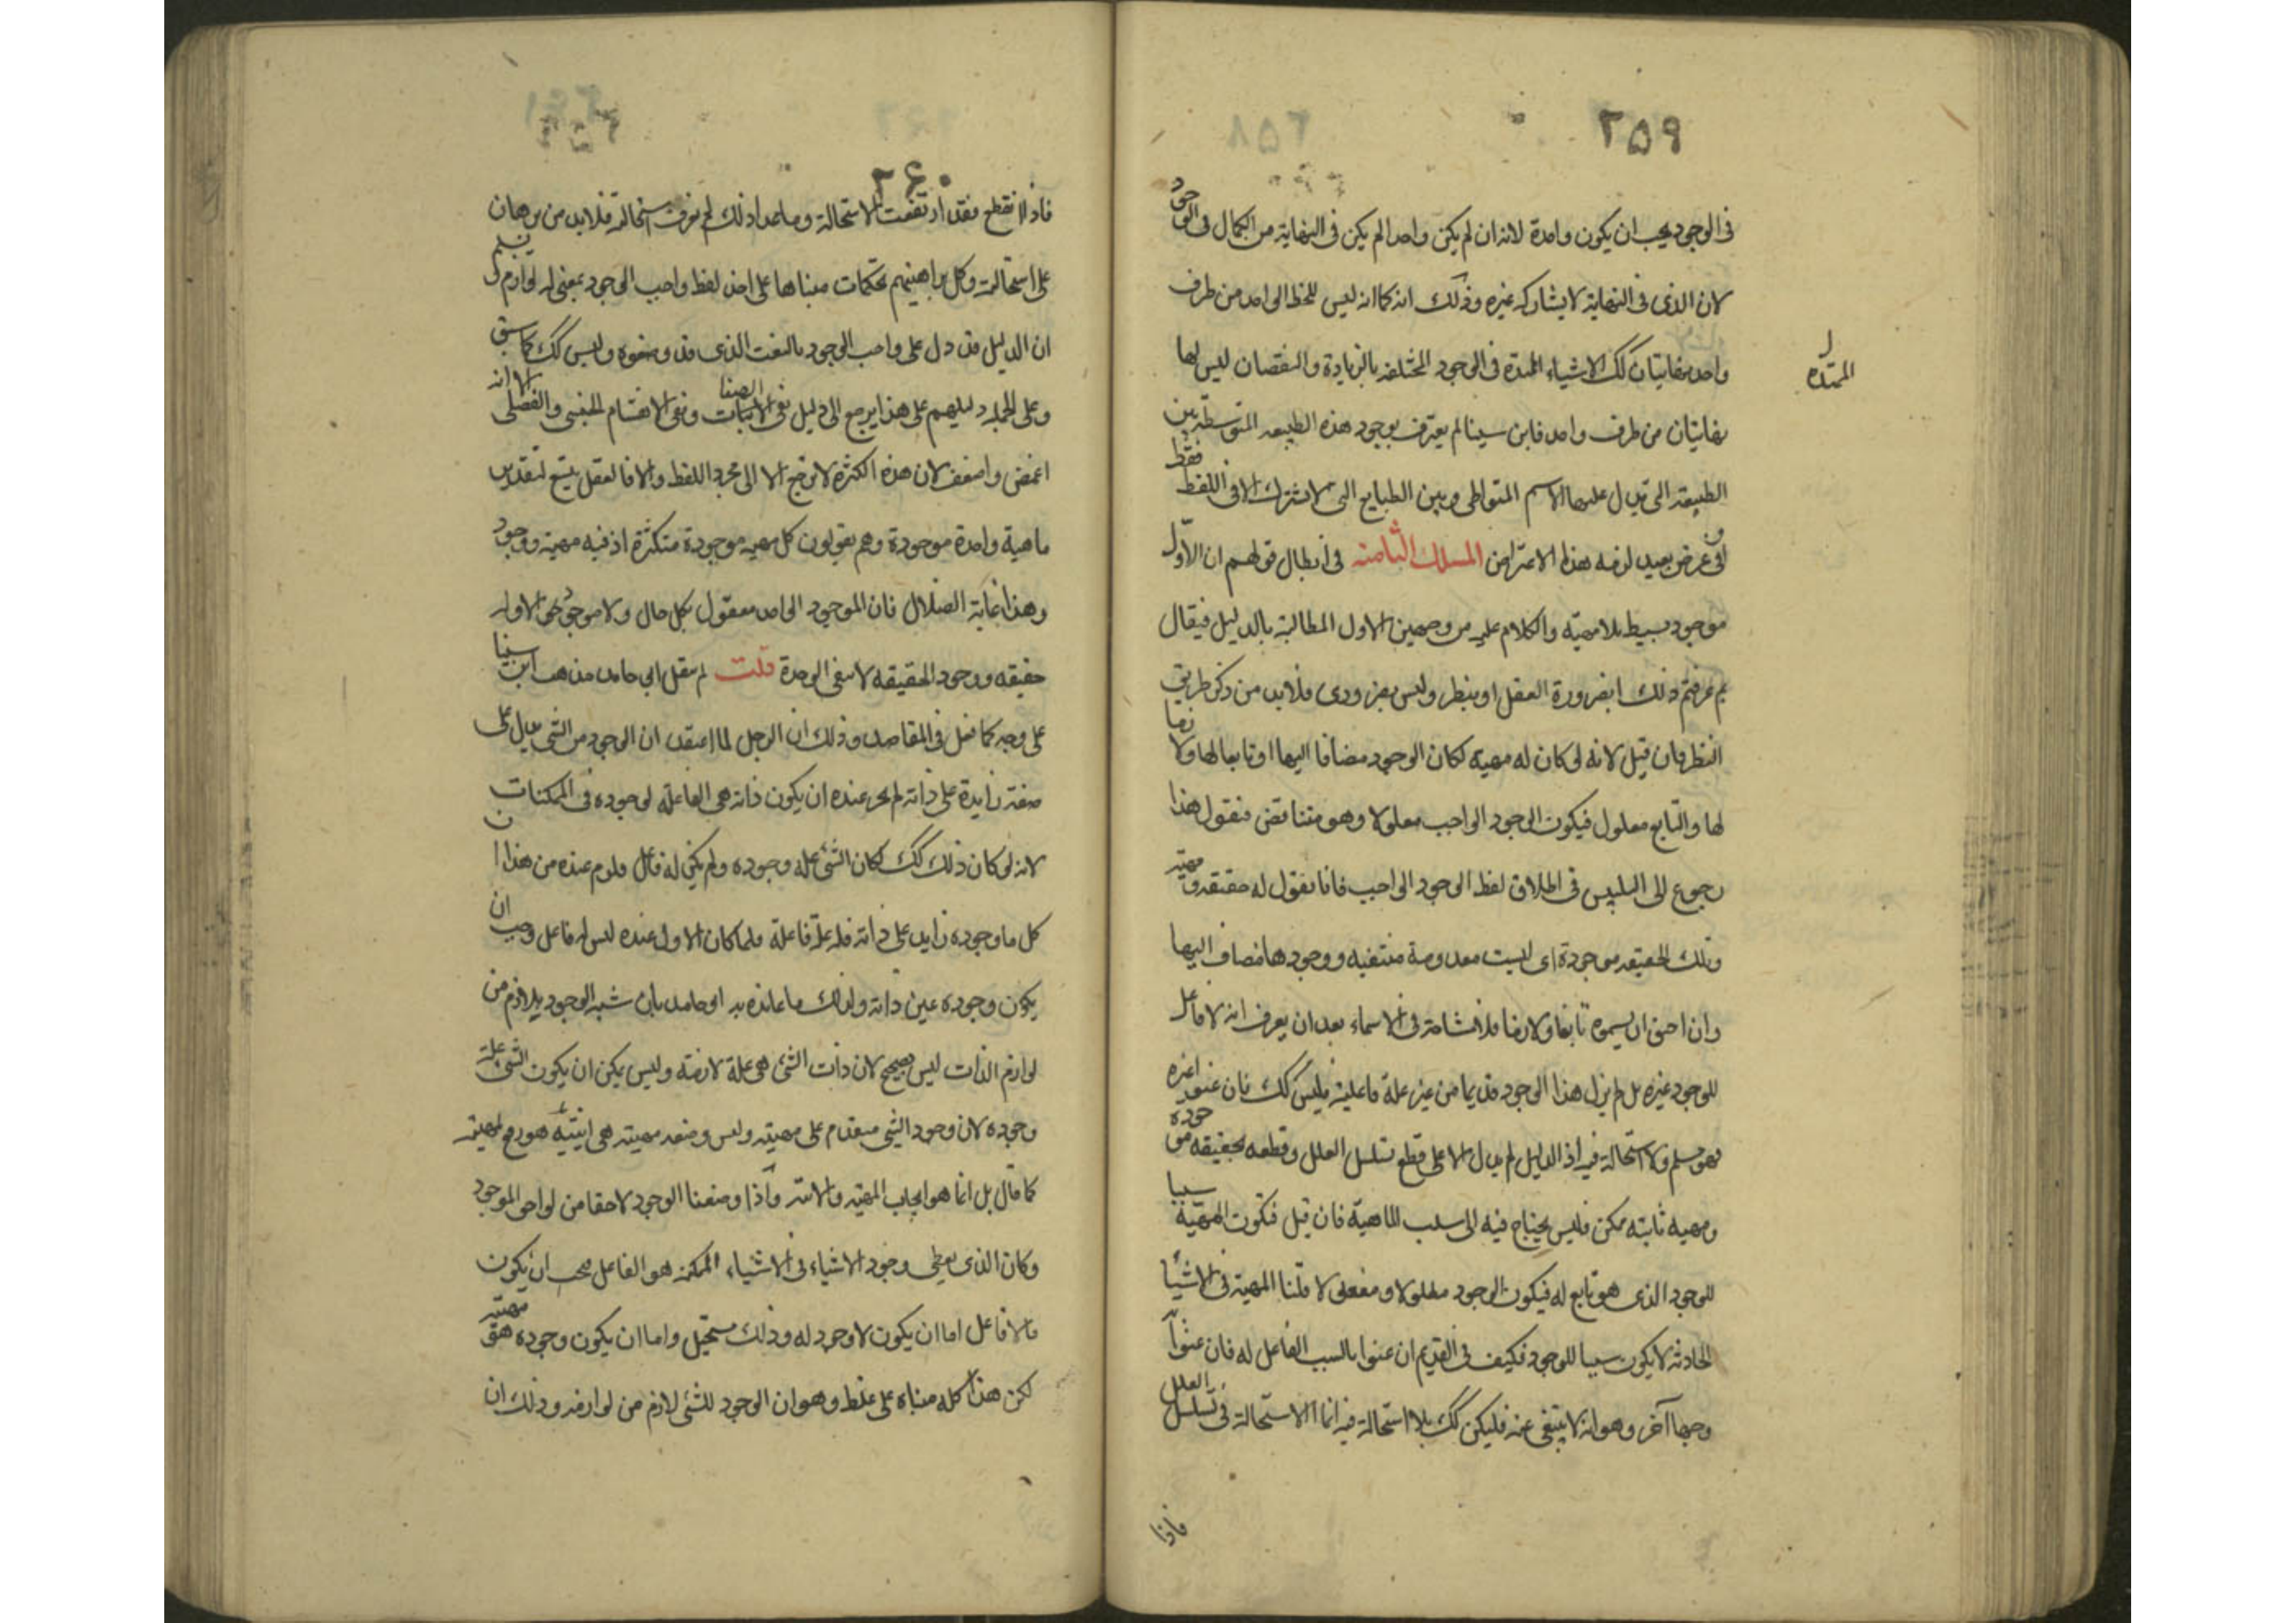 ٢٥٩
فى الوجود يجب ان يكون واحدة لانه ان لم يكن واحدا لم يكن فى النهاية من الكمال فى الوجود
لان الذى فى النهاية لا يشاركه غيره وذلك انه كما انه ليس للخط الواحد من طرف
واحد نهايتان كك الاشياء الممتدة فى الوجود المختلفه بالزيادة والنقصان ليس لها
الممتده
نهايتان من طرف واحد فابن سينا لم يعترف بوجود هذه الطبيعه المتوسطة بين
الطبيعه التى يدل عليها الاسم المتواطى وبين الطبايع التى لا تشترك الا فى اللفظ فقط
او فى عرض بعيد لزمه هذا الاعتراض المسلك الثامنه فى ابطال قولهم ان الاوّل
موجود بسيط بلا مهيّه والكلام عليه من وجهين الاول المطالبة بالدليل فيقال
بم عرفتم ذلك ابضرورة العقل او بنظر وليس بضرورى فلابد من ذكر طريق
النظر فان قيل لانه لو كان له مهيه لكان الوجود مضافا اليها او تابعا لها ولازما
لها والتابع معلول فيكون الوجود الواجب معلولا وهو متناقض فنقول هذا
رجوع الى التلبيس فى اطلاق لفظ الوجود الواجب فانا نقول له حقيقه ومهيّه
وتلك الحقيقه موجودة اى ليست معدومة منتفيه ووجودها مضاف اليها
وان احبوا ان يسموه تابعا ولازما فلا مشاحة فى الاسماء بعد ان يعرف انه لا فاعل
للوجود غيره بل لم يزل هذا الوجود قديما من غير علة فاعلية فليس كك فان عنوا غيره
فهو مسلم ولا استحالة فيه اذ الدليل لم يدل الا على قطع تسلسل العلل وقطعه بحقيقه موجوده
ومهيه ثابته ممكن فليس يحتاج فيه الى سلب الماهيّة فان قيل فتكون المهيّة سببا
للوجود الذى هو تابع له فيكون الوجود معلولا ومفعولا قلنا المهية فى الاشيأ
الحادثه لا يكون سببا للوجود فكيف فى القديم ان عنوا بالسبب الفاعل له فان عنوا به
وجها آخر وهو انه لا يستغنى عنه فليكن كك بلا استحالة فيه انما الاستحالة فى تسلسل العلل
فاذا
٢٦٠
فاذا انقطع فقد ارتفعت الاستحالة وما عدا ذلك لم يعرف استحالته فلابد من برهان
على استحالته وكل براهينهم تحكمات مبناها على اخذ لفظ واجب الوجود بمعنى له لوازم وتسلم
ان الدليل قد دل على واجب الوجود بالنعت الذى قد وصفوه وليس كك كما سبق
وعلى الجملة دليلهم على هذا يرجع الى دليل نفى الصفات ونفى الانقسام الجنسى والفصلى الا انه
اغمض واضعف لان هذه الكثره لا ترجع الا الى مجرد اللفظ والا فالعقل يتسع لتقدير
ماهية واحدة موجودة وهم يقولون كل مهيه موجودة متكثرة اذ فيه مهية ووجود
وهذا غاية الضلال فان الموجود الواحد معقول بكل حال ولا موجود الا وله
حقيقه ووجود الحقيقه لا ينفى الوحدة قلت لم ينقل ابى حامد مذهب ابن سينا
على وجهه كما فعل فى المقاصد وذلك ان الرجل لما اعتقد ان الوجود من الشى يدل على
صفة زايدة على ذاته لم يجز عنده ان يكون ذاته هى الفاعلة لوجوده فى الممكنات
لانه لو كان ذلك كك لكان الشئ علة وجوده ولم يكن له فاعل فلزم عنده من هذا ان
كل ما وجوده زايد على ذاته فله علة فاعلة ولما كان الاول عنده ليس له فاعل وجب ان
يكون وجوده عين ذاته ولذلك ما عانده به ابو حامد بان شبه الوجود بلازم من
لوازم الذات ليس بصحيح لان ذات الشئ هى علة لازمة وليس يمكن ان يكون الشى علة
وجوده لان وجود الشى متقدم على مهيته وليس وضعه مهيته هى انيته هو رفع لمهيته
كما قال بل انما هو ايجاب المهيّه والانيه واذا وضعنا الوجود لاحقا من لواحق الموجود
وكان الذى يعطى وجود الاشياء فى الاشياء الممكنة هو الفاعل يجب ان يكون
ما لا فاعل اما ان يكون لا وجود له وذلك مستحيل واما ان يكون وجوده هو مهيته
لكن هذا كله مبناه على غلط وهو ان الوجود للشئ لازم من لوازمه وذلك ان